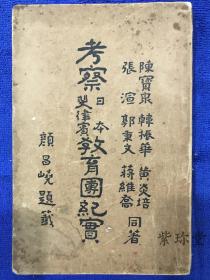 陳寶泉 韓振華 黃炎培
張渲 郭秉文 蔣維喬 同著
考察日本斐律賓教育團紀實
顏昌嶢題籤
紫珎堂